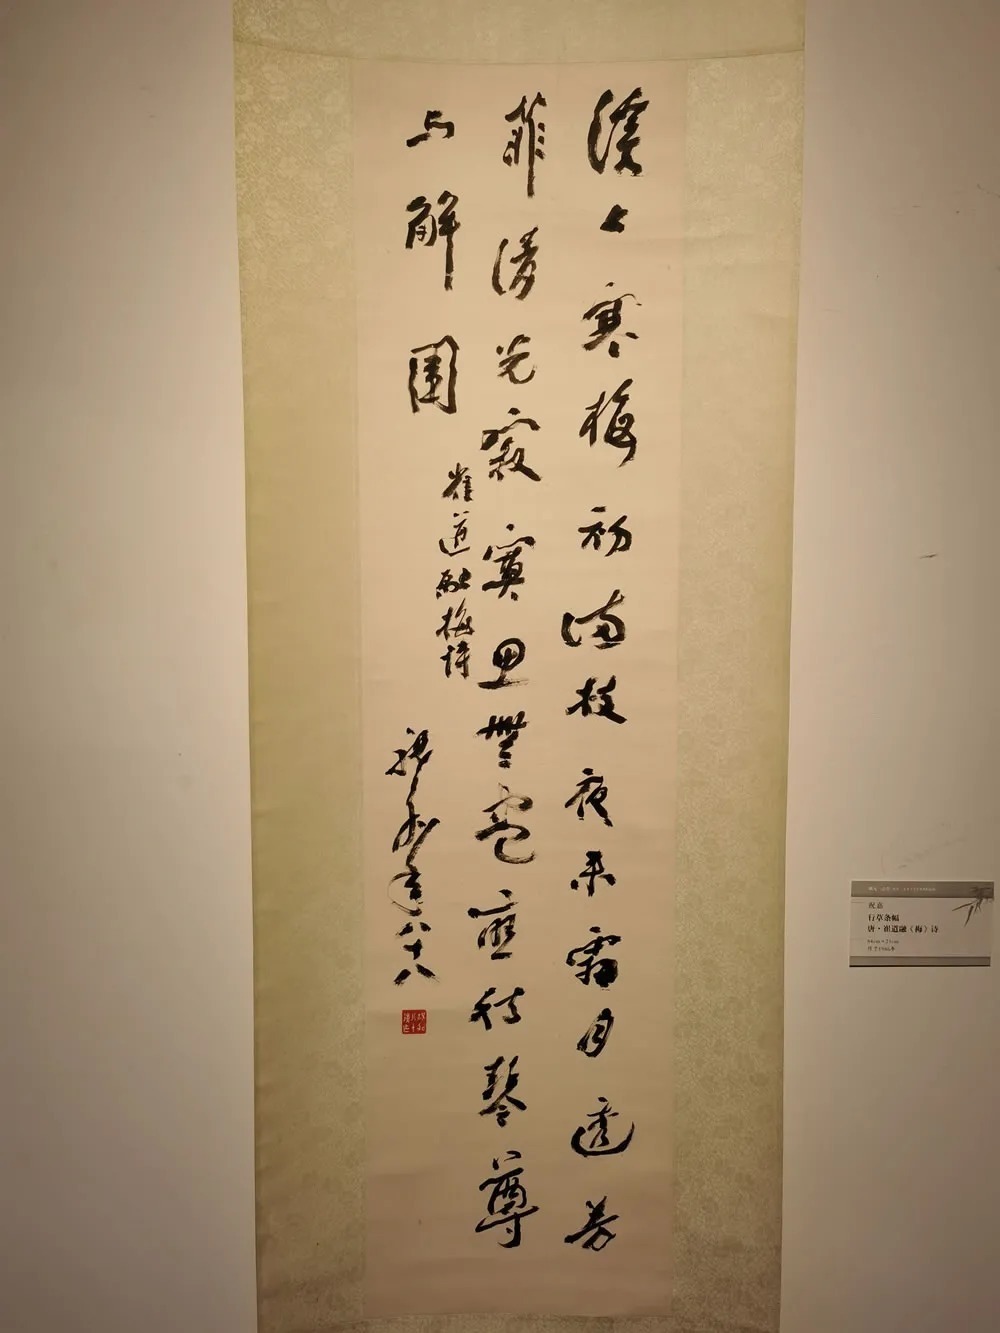 溪上寒梅初满枝夜来霜月透芳
菲清光寂寞思無盡應待琴尊
与解圍
崔道融梅诗
祝嘉年八十八
祝嘉
行草条幅
唐·崔道融《梅》诗